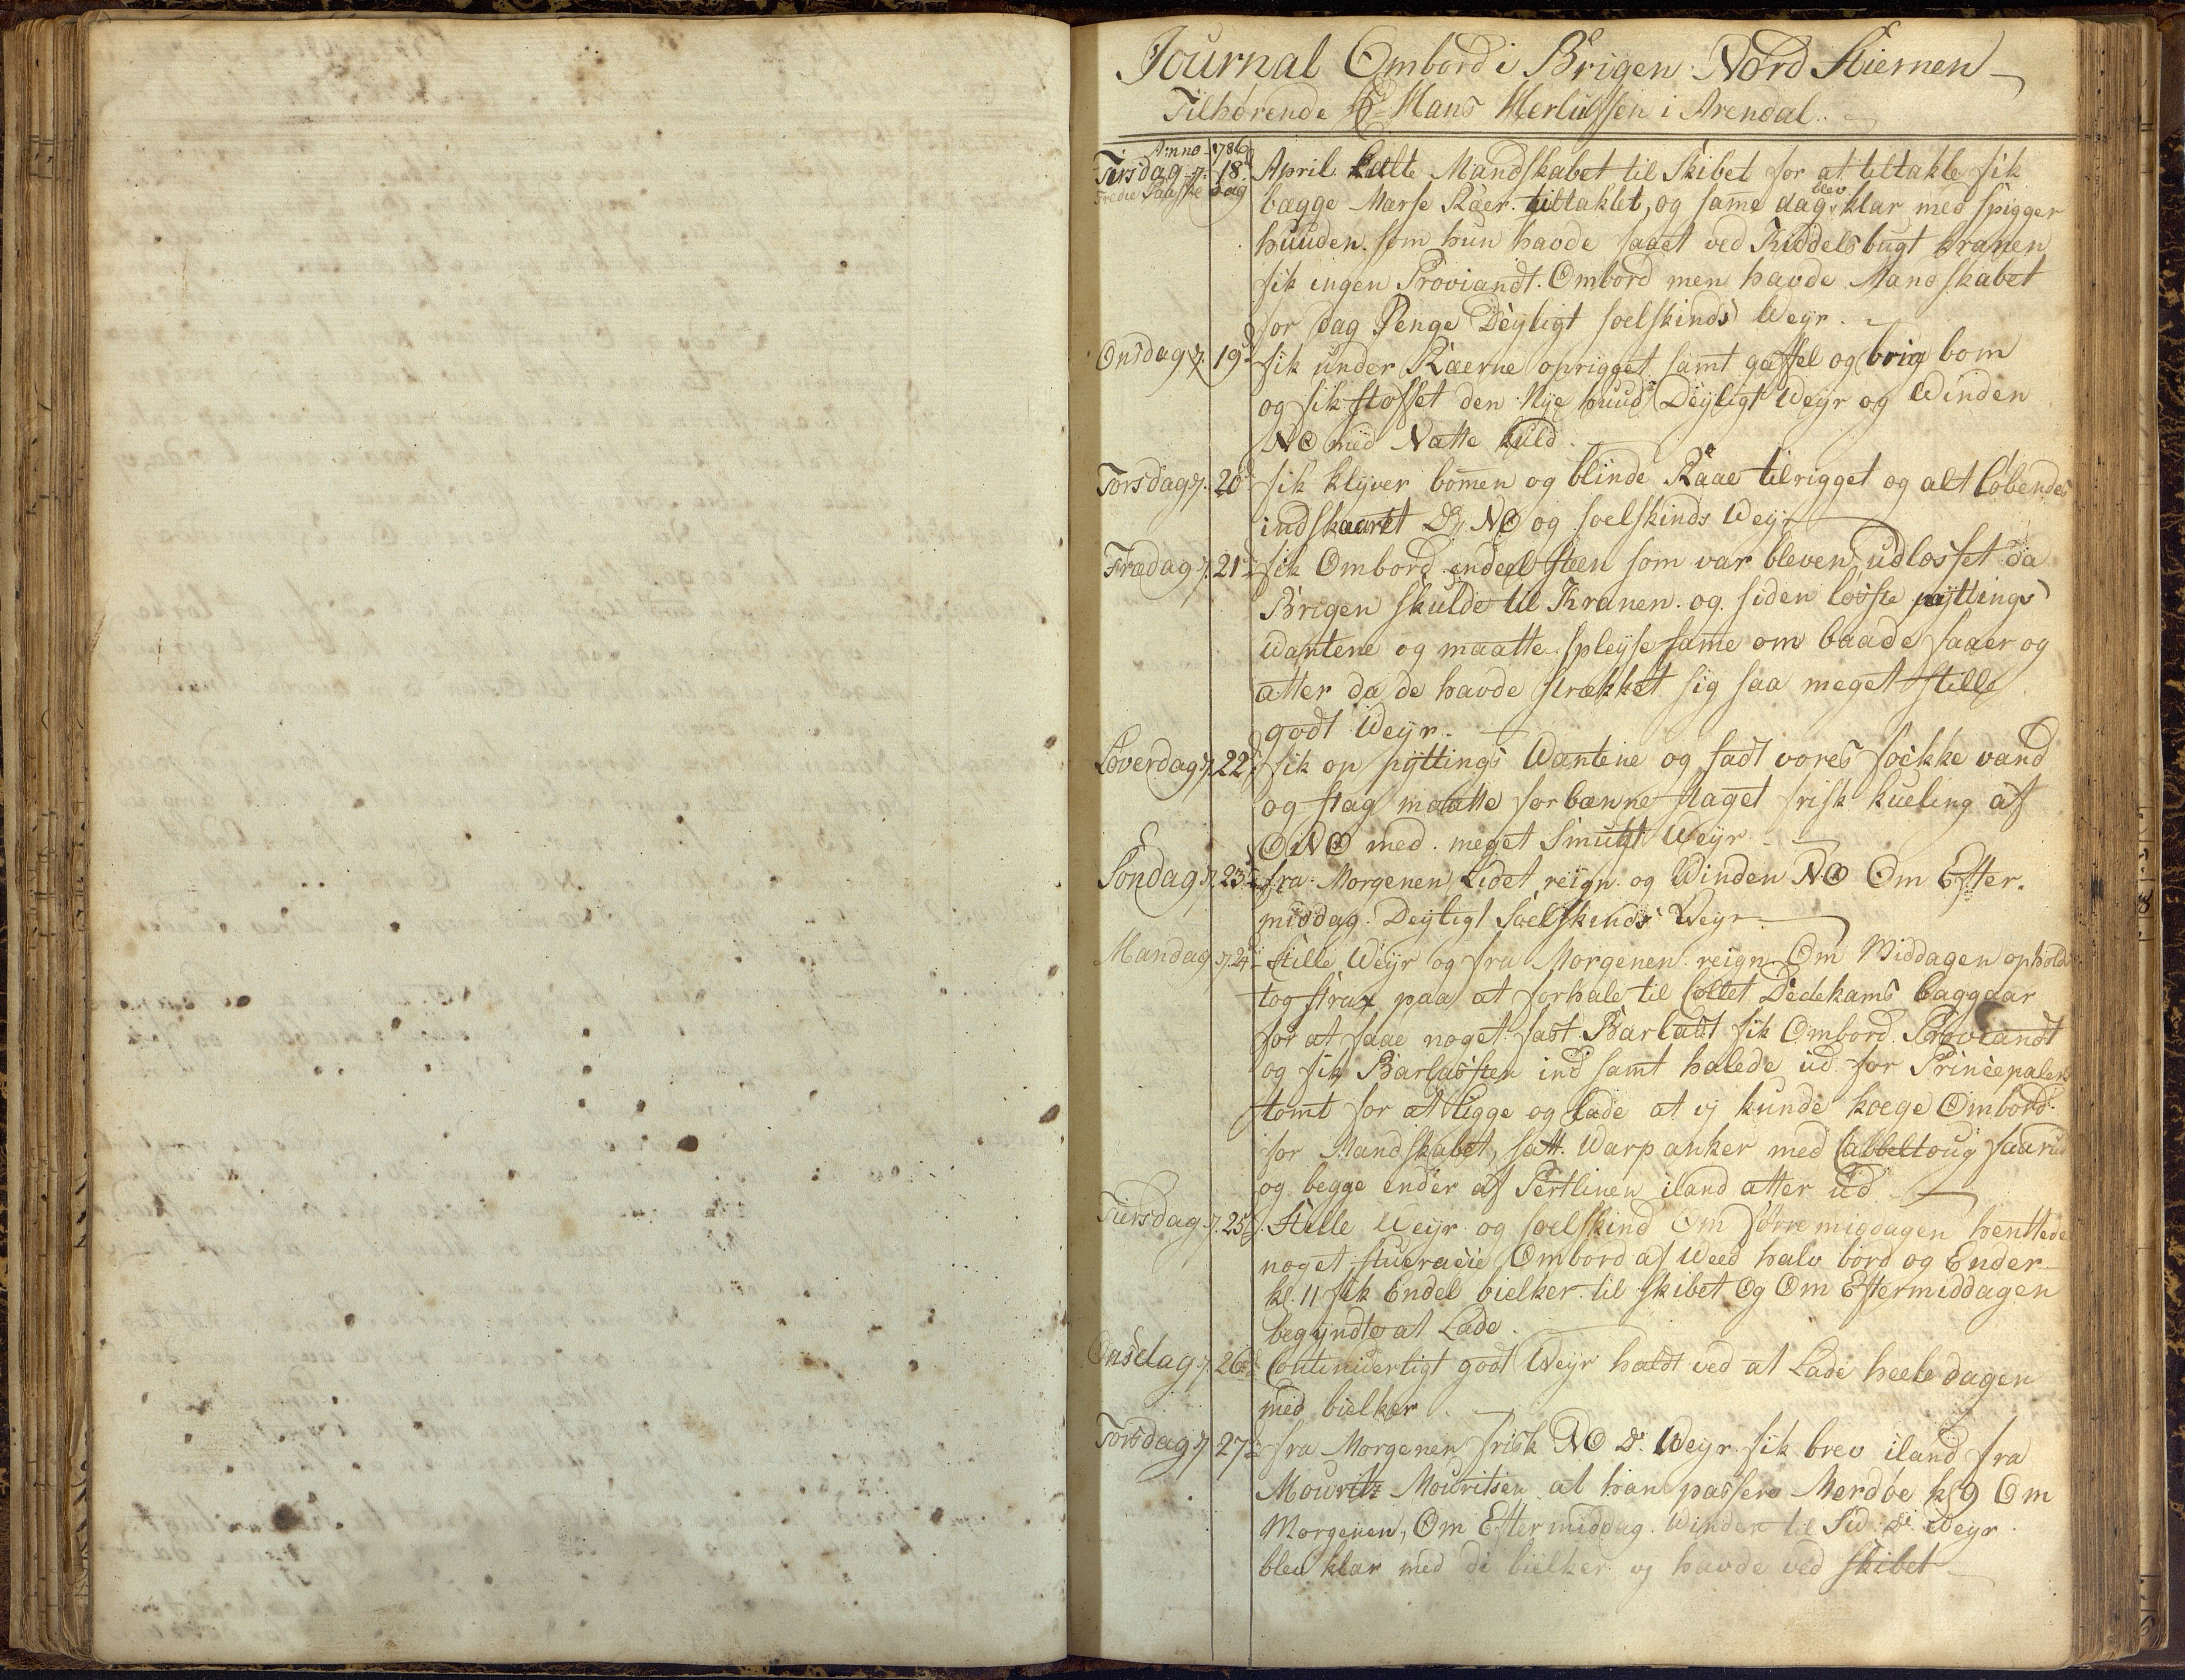 Journal Ombord i Brigen Nord Stiernen
Tilhørende Hr Hans Herlufsen i Arendal
Anno 1786
Tirsdag d. 18 April Mandskabet til Skibet for at tiltakle fik
Tredie Paaske dag bægge Merse Ræer tiltaklet, og same dag blev klar med spigger
huuden som hun havde faaet ved Kiddelsbugt kranen
fik ingen Proviandt Ombord men havde Mandskabet
for dag Penge Deyligt soelskinds Weyr.
Onsdag d. 19 fik under Ræerne oprigget samt gaffel og brig bom
og fik stosset den Nye huud Deyligt Weyr og Winden
NO med Natte kuld
Torsdag d. 20 fik klyver bomen og blinde Raae tilrigget og alt løbendes
indskaaret Do NO og soelskinds Weyr
Fredag d. 21 fik Ombord endeel steen som var bleven udlosset da
Brigen skulde til Kranen og siden løsste pyttings
wantene og maatte spleyse same om baade faaer og
atter da de havde strækket sig saa meget stille
godt Weyr.
Løverdag d. 22 fik op pyttings Wantene og sadt vores fokke vand
og stag maatte forbænne staget frisk kueling af
ONO med meget Smukt Weyr
Søndag d. 23 fra Morgenen Lidet reign og Winden NO Om Efter-
middag Deyligt Soelskinds Weyr
Mandag d. 24 Stille Weyr og fra Morgenen reign Om Middagen ophold
tog strax paa at forhale til Collet Dedekams baggaar
for at faae noget fast Barlast fik Ombord Proviandt
og fik Barlasten ind samt halede ud for Principalens
tomt for at ligge og lade at vj kunde koege Ombord
for Mandskabet, satt Warp anker med Cabbeltoug faar ud
og begge ender af Pertlinen iland atter ud
Tiersdag d. 25 Stille Weyr og soelskind Om førremigdagen henttede
noget stueracie Ombord af Weed halv bord og Ender
kl. 11 fik Endel bielker til skibet Og Om Eftermiddagen
begyndte at Lade.
Onsdag d. 26 Continuerligt godt Weyr holdt ved at Lade heele dagen
med bielker
Torsdag d. 27 fra Morgenen frisk NO Do Weyr fik brev iland fra
Mouritz Mouritsen at han passere Merdøe kl 9 Om
Morgenen, Om Eftermiddag Winden til Sid Do Weyr
blev klar med de bielker vj havde ved skibet